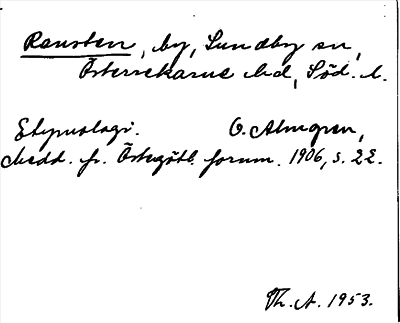 Ransten, by, Sundby sn,
Österrekarne hd, Söd. l.
Etymologi. O. Almgren,
Medd. fr. Östergötl. fornm. 1906, s. 22.
Th. A. 1953.